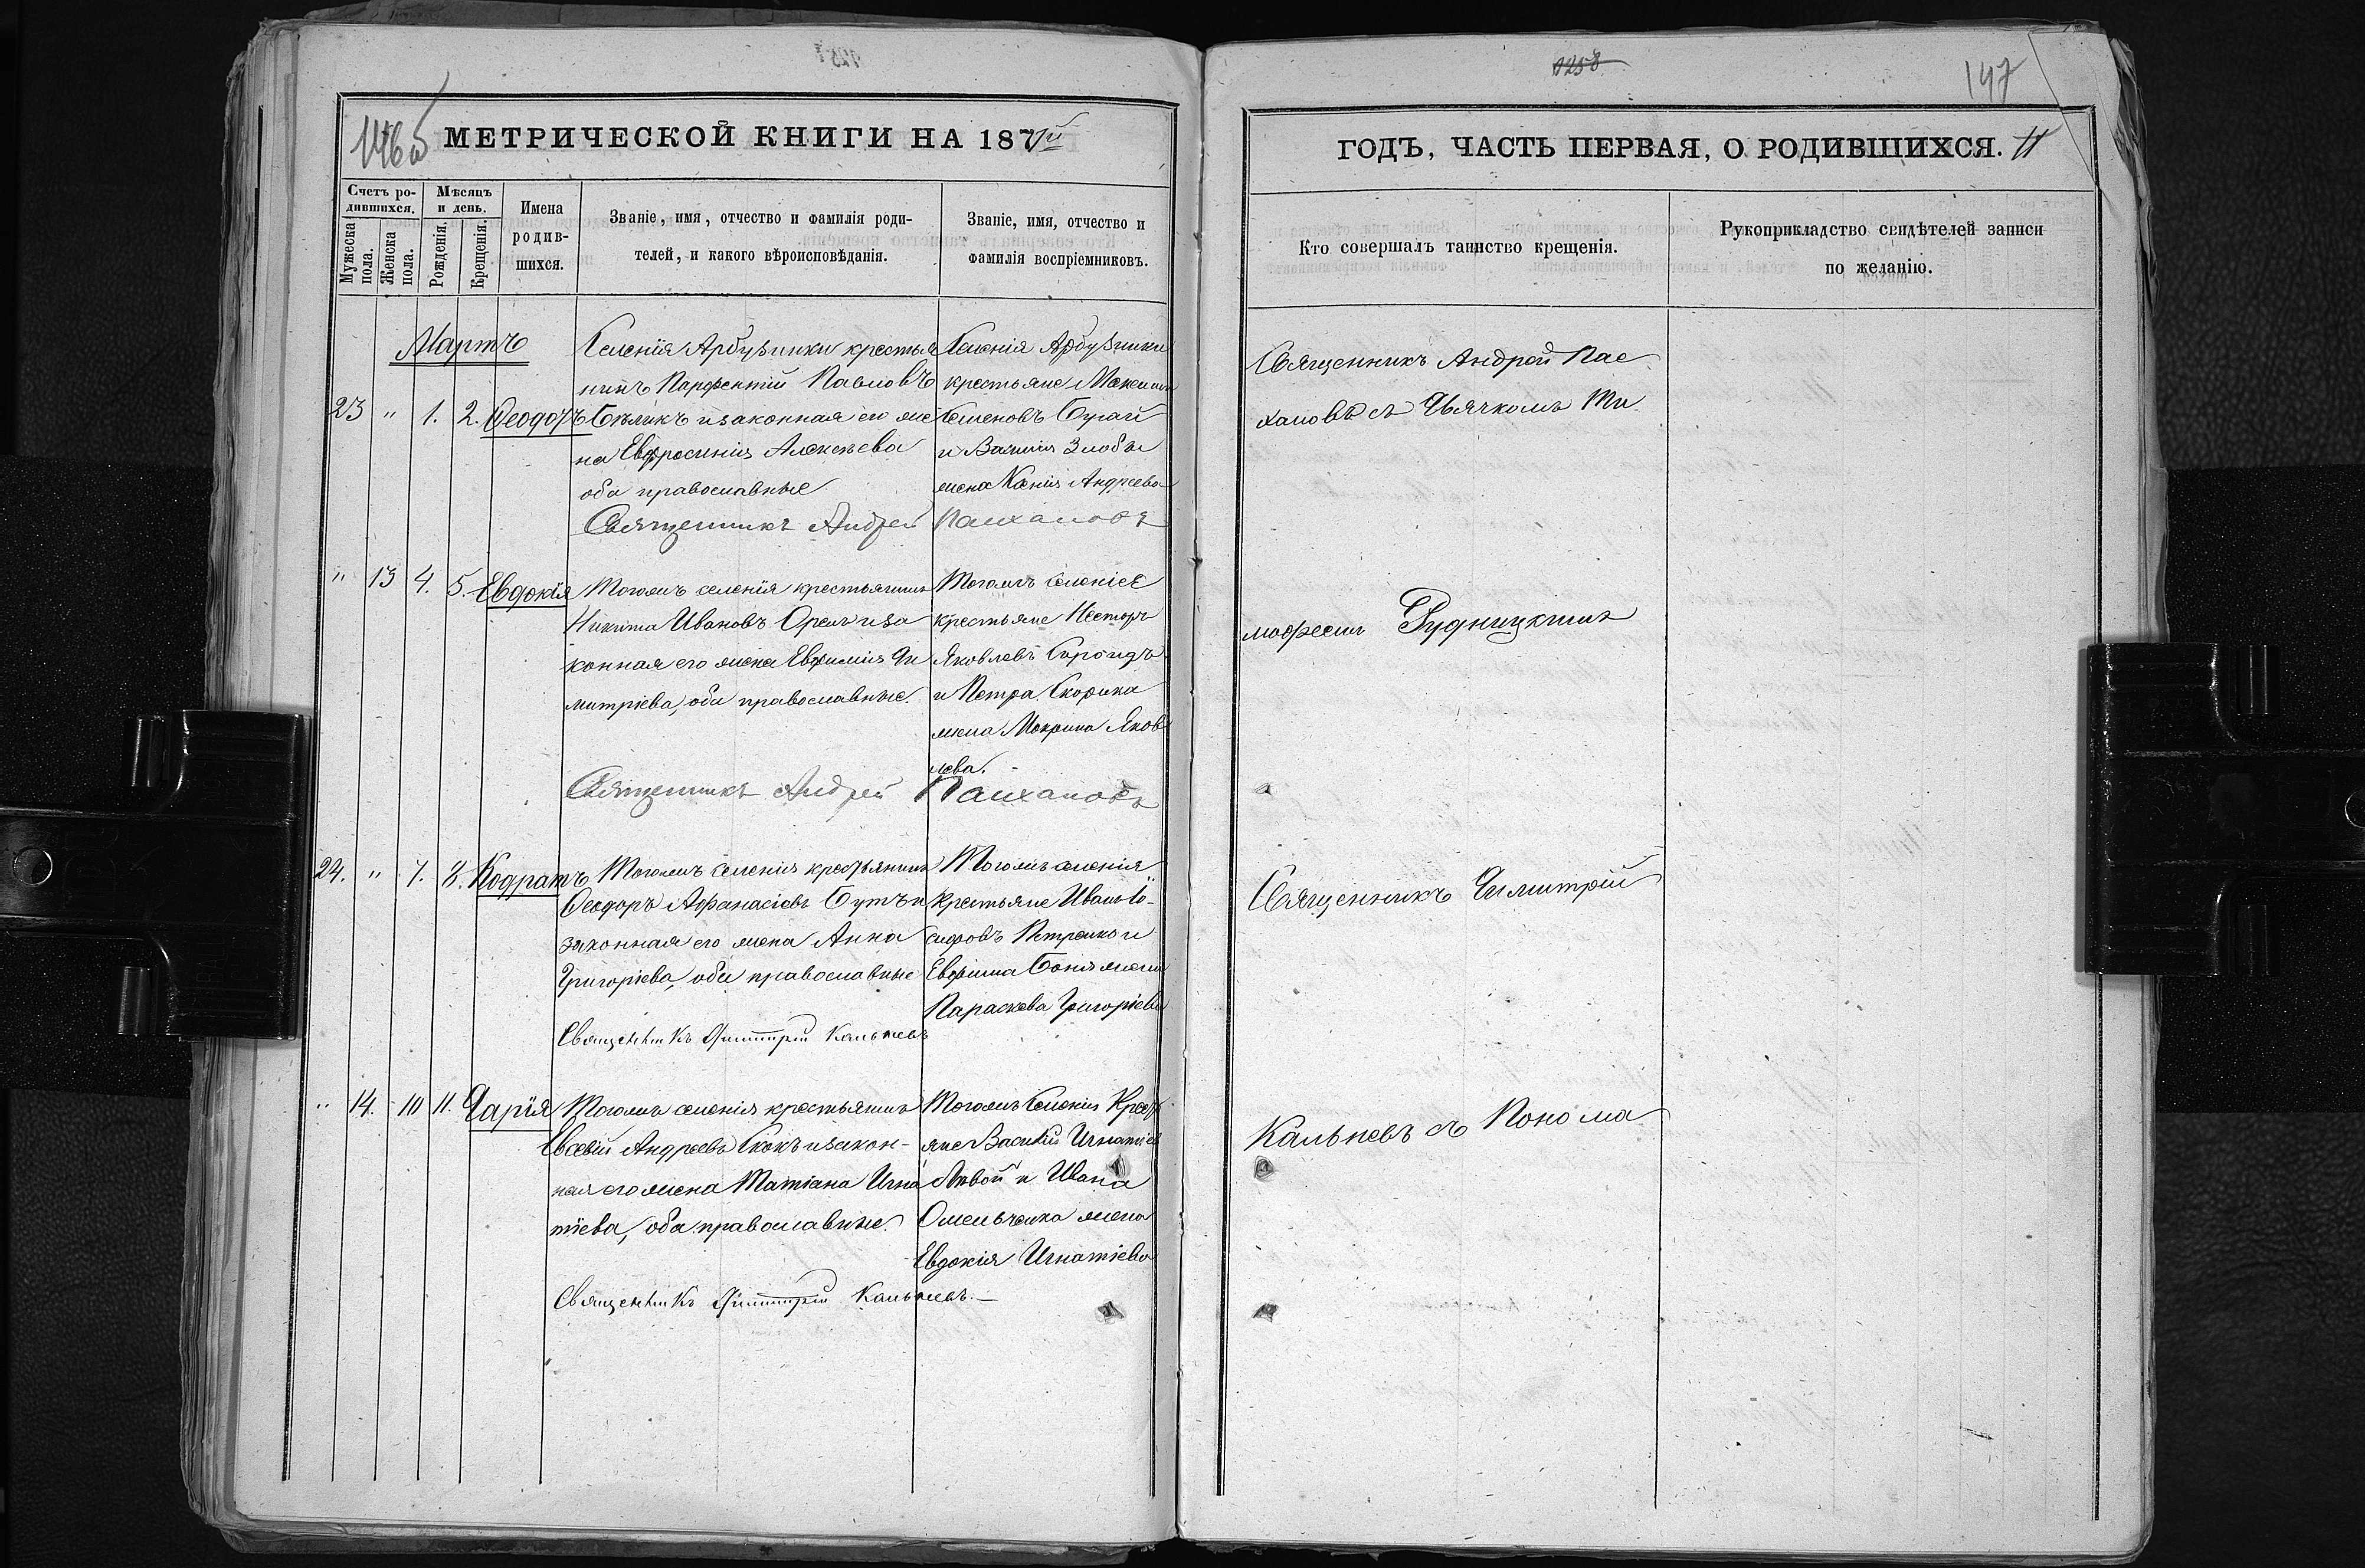 146об
МЕТРИЧЕСКОЙ КНИГИ НА 187
Счетъ ро-
дившихся.
Мѣсяцъ
и день.
Мужеска
пола.
Женска
пола.
Рожденія.
Крещенія.
Имена
родив-
шихся.
Званіе, имя, отчество и фамилія роди-
телей, и какого вѣроисповѣданія.
Званіе, имя, отчество и
фамилія воспріемниковъ.
Мартъ
23 " 1. 2. Ѳеодотъ
Селенія Арбузинки крестья
нинъ Парфентій Павловъ
Бѣликъ и законная его же
на Евфросинія Алексѣева
оба православные
Селенія Арбузинки
крестьяне Максимъ
Семеновъ Бугай
и Василія Злобы
жена Ксенія Андреева
Священникъ Андрей
" 13 4. 5. Евдокія
Тогожъ селенія крестьянинъ
Никита Ивановъ Орелъ и за
конная его жена Евфимія Ди
митріева, оба православные.
Тогожъ селеніе
крестьяне Несторъ
Яковлевъ
и Петра Скорика
жена Макрина Яков
лева.
Священникъ Андрей
24. " 7. 8. Кодратъ
Тогожъ селенія крестьянинъ
Ѳеодоръ Афанасіевъ и
законная его жена Анна
Григоріева, оба православные
Тогожъ селенія
крестьяне Иванъ Іо-
сифовъ Петренко и
Евфима жена
Параскева Григоріева
Священникъ Димитрій Кальневъ
" 14. 10 11. Дарія
Тогожъ селенія крестьянинъ
Евсевій Андреевъ Скокъ и закон-
ная его жена Татіана Игна
тіева, оба православные.
Тогожъ селенія Кресть
яне Василій Игнатіев
и Ивана
Омельченка жена
Евдокія Игнатіева
Священникъ Димитрій Кальневъ.
1258
147
ГОДЪ, ЧАСТЬ ПЕРВАЯ, О РОДИВШИХСЯ.
Кто совершалъ таинство крещенія.
Рукоприкладство свидѣтелей записи
по желанію.
Священникъ Андрей Пас
халовъ съ Дьячкомъ Ти
мофеемъ Рудницкимъ
Священникъ Димитрій
Кальневъ съ Понома